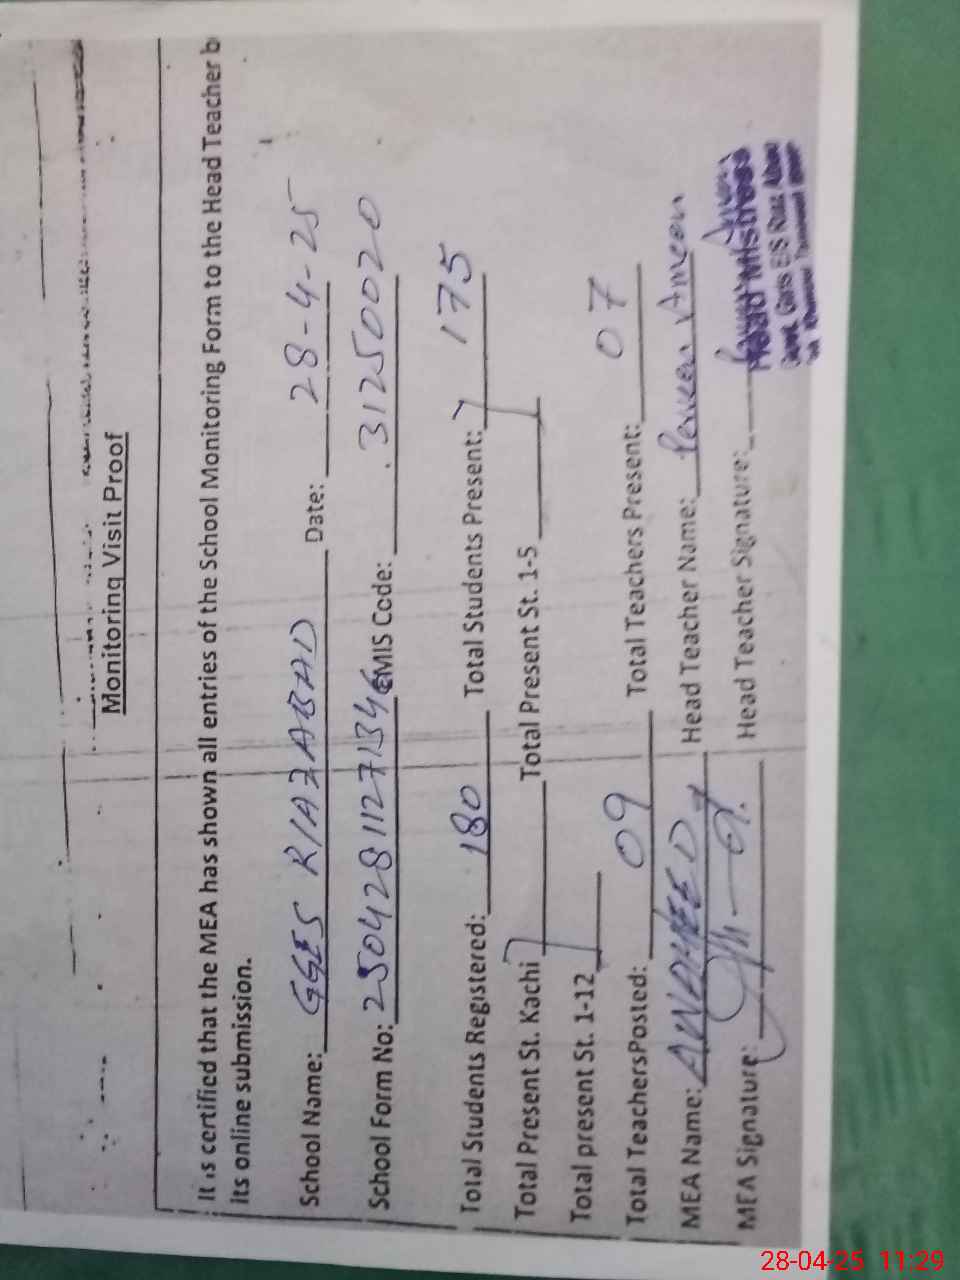 Monitoring Visit Proof
It is certified that the MEA has shown all entries of the School Monitoring Form to the Head Teacher b
its online submission.
School Name: GGES RIAZABAD Date: 28-4-25
School Form No: 25042811271346 EMIS Code: 31250020
Total Students Registered: 180 Total Students Present: 175
Total Present St. Kachi Total Present St. 1-5
Total present St. 1-12
Total TeachersPosted: 09 Total Teachers Present: 07
MEA Name: Head Teacher Name: Ameen
MEA Signature: Head Teacher Signature:
Head Mistress
Govt. Girls E/S Riaz Abad
28-04-25 11:29